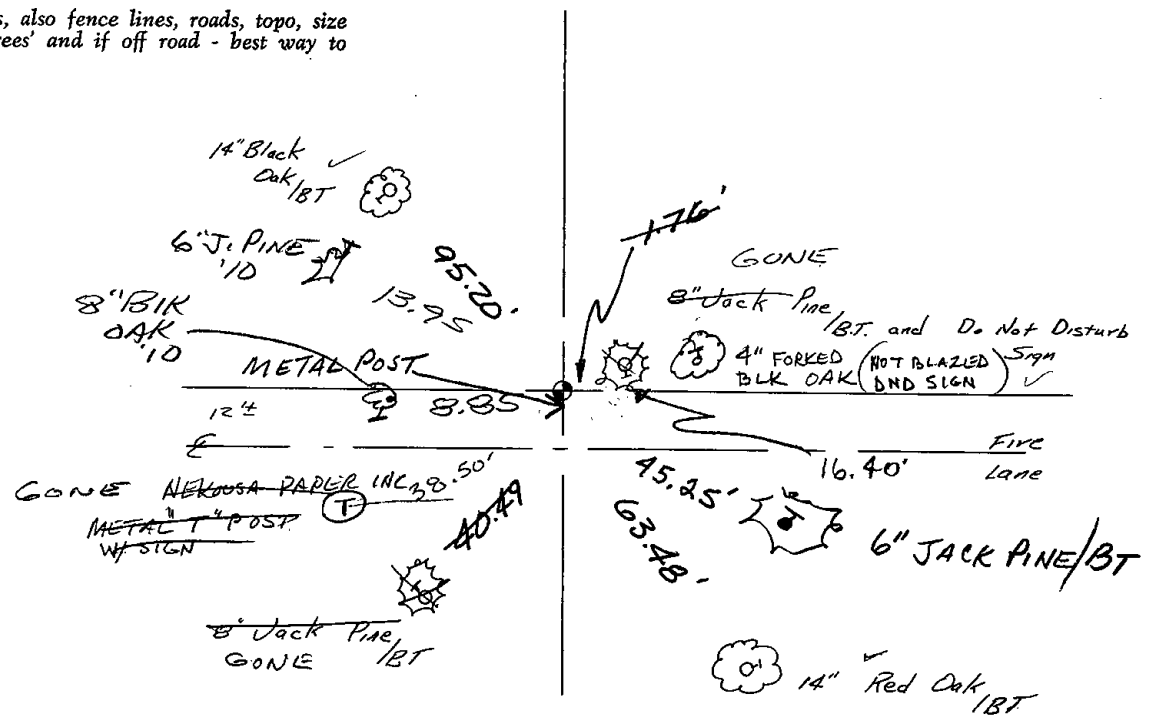 s, also fence lines, roads, topo, size
rees' and if off road - best way to
14" Black ✓
Oak/BT
6" J. PINE
'10
95.20'
13.95
8" BlK
OAK
'10
METAL POST
8.85
1.76'
GONE
8" Jack Pine
/B.T. and Do Not Disturb
Sign ✓
4" FORKED
BLK OAK
(NOT BLAZED
DND SIGN)
12'±
℄
Fire
Lane
16.40'
GONE NEKOOSA PAPER INC
METAL "T" POST
W/ SIGN
T
38.50'
40.49
45.25'
63.48'
6" JACK PINE/BT
8" Jack Pine
/BT
GONE
14" ✓ Red Oak
/BT